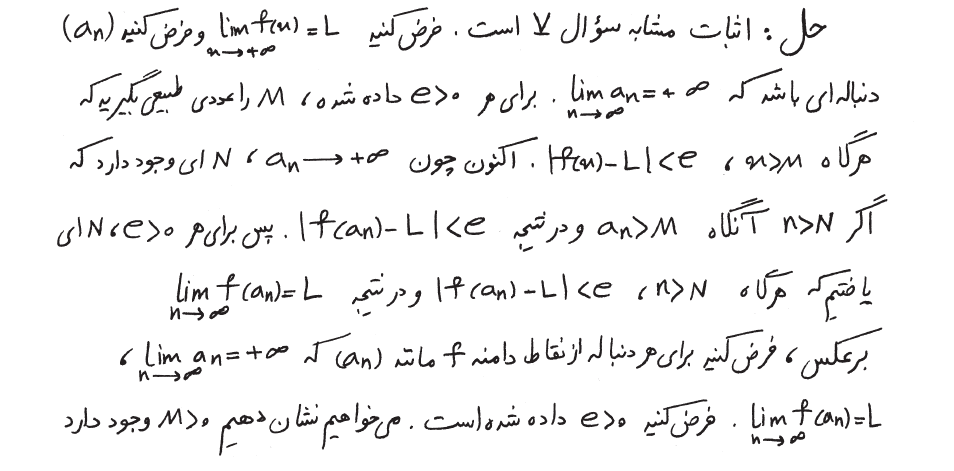 حل : اثبات مشابه سؤال ۷ است . فرض کنید lim_{x→+∞} f(x) = L و فرض کنید (aₙ)
دنباله‌ای باشد که lim_{n→∞} aₙ = +∞ . برای هر e>0 داده شده ، M را عددی طبیعی بگیرید که
هرگاه x>M ، |f(x)-L|<e . اکنون چون aₙ → +∞ ، N ای وجود دارد که
اگر n>N آنگاه aₙ>M و در نتیجه |f(aₙ)-L|<e . پس برای هر e>0 ، N ای
یافتیم که هرگاه n>N ، |f(aₙ)-L|<e و در نتیجه lim_{n→∞} f(aₙ)=L
برعکس ، فرض کنید برای هر دنباله از نقاط دامنه f مانند (aₙ) که lim_{n→∞} aₙ = +∞ ،
lim_{n→∞} f(aₙ)=L . فرض کنید e>0 داده شده است . می‌خواهیم نشان دهیم M>0 وجود دارد